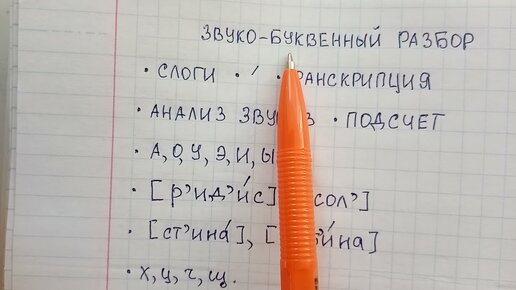 ЗВУКО-БУКВЕННЫЙ РАЗБОР
• СЛОГИ • ՛ • ТРАНСКРИПЦИЯ
• АНАЛИЗ • ПОДСЧЕТ
• А, О, У, Э, И, Ы
• [р’ид’и́с]
• [ст’ина́],
• х, ц, ч, щ.